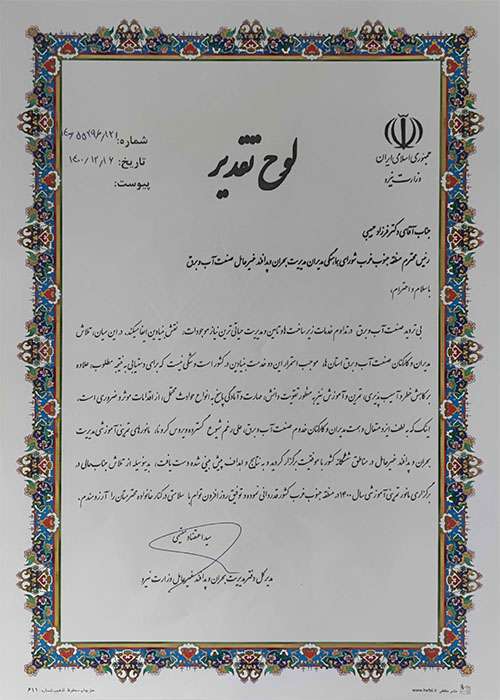 جمهوری اسلامی ایران
وزارت نیرو
شماره:
تاریخ: ۱۴۰۰/۱۲/۱۶
پیوست:
لوح تقدیر
جناب آقای دکتر فرزاد حبیبی
رئیس محترم منطقه جنوب غرب شورای هماهنگی مدیران مدیریت بحران و پدافند غیرعامل صنعت آب و برق
با سلام و احترام،
بی تردید صنعت آب و برق در تداوم خدمات زیرساخت‌ها و تامین و مدیریت حیاتی ترین نیاز موجودات، نقش بنیادین ایفا میکند. در این میان، تلاش
مدیران و کارکنان صنعت آب و برق استان ها، موجب استمرار این دو خدمت بنیادین در کشور است و شکی نیست که برای دستیابی به نتیجه مطلوب؛ علاوه
بر کاهش خطر و آسیب پذیری، تمرین و آموزش نیز به منظور تقویت دانش، مهارت و آمادگی پاسخ به انواع حوادث محتمل، از اقدامات موثر و ضروری است.
اینک که به لطف ایزد متعال و همت مدیران و کارکنان خدوم صنعت آب و برق، علی رغم شیوع گسترده ویروس کرونا، مانورهای تمرینی آموزشی مدیریت
بحران و پدافند غیرعامل در مناطق ششگانه کشور با موفقیت برگزار گردید و به نتایج و اهداف پیش بینی شده دست یافت، بدینوسیله از تلاش جنابعالی در
برگزاری مانور تمرینی آموزشی سال ۱۴۰۰ در منطقه جنوب غرب کشور قدردانی نموده و توفیق روزافزون توام با سلامتی در کنار خانواده محترمتان را آرزومندم.
مدیرکل دفتر مدیریت بحران و پدافند غیرعامل وزارت نیرو